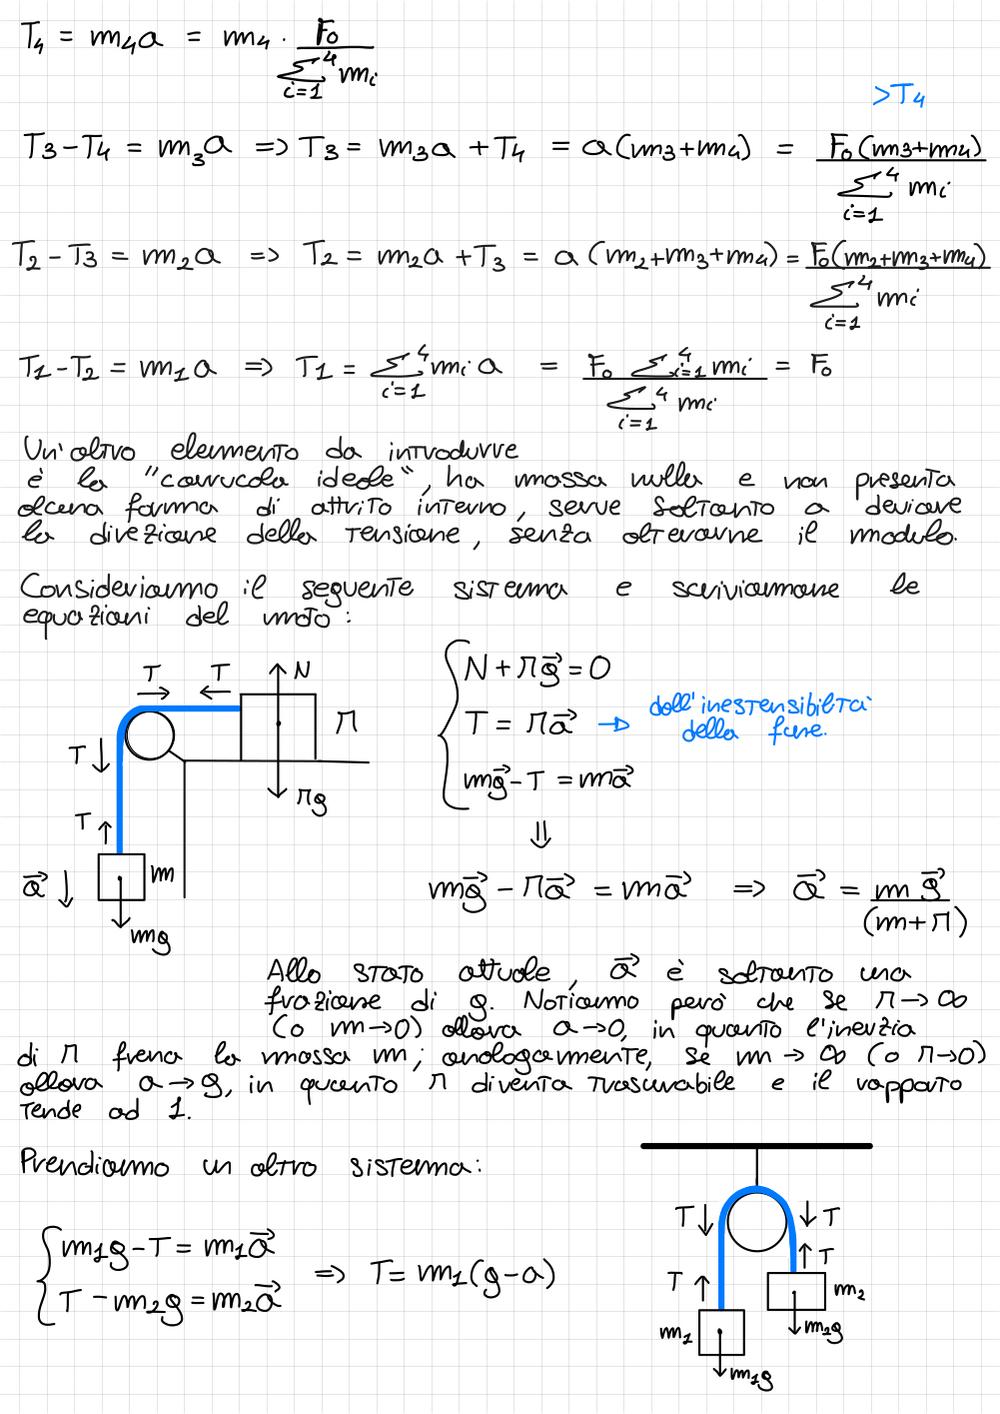 T₄ = m₄a = m₄ · F₀ / Σ⁴ᵢ₌₁ mᵢ
>T₄
T₃-T₄ = m₃a => T₃ = m₃a + T₄ = a(m₃+m₄) = F₀(m₃+m₄) / Σ⁴ᵢ₌₁ mᵢ
T₂-T₃ = m₂a => T₂ = m₂a + T₃ = a(m₂+m₃+m₄) = F₀(m₂+m₃+m₄) / Σ⁴ᵢ₌₁ mᵢ
T₁-T₂ = m₁a => T₁ = Σ⁴ᵢ₌₁ mᵢ a = F₀ Σ⁴ᵢ₌₁ mᵢ / Σ⁴ᵢ₌₁ mᵢ = F₀
Un'altro elemento da introdurre
è la "carrucola ideale", ha massa nulla e non presenta
alcuna forma di attrito interno, serve soltanto a deviare
la direzione della tensione, senza alterarne il modulo.
Consideriamo il seguente sistema e scriviamone le
equazioni del moto:
T → T ← ↑ N
M
T ↓
Mg
T ↑
a⃗ ↓
m
mg
{ N + Mg⃗ = 0
T = Ma⃗ → dall'inestensibilità
della fune.
mg⃗ - T = ma⃗
⇓
mg⃗ - Ma⃗ = ma⃗ => a⃗ = m g⃗ / (m+M)
Allo stato attuale, a⃗ è soltanto una
frazione di g. Notiamo però che se M→∞
(o m→0) allora a→0, in quanto l'inerzia
di M frena la massa m; analogamente, se m→∞ (o M→0)
allora a→g, in quanto M diventa trascurabile e il rapporto
tende ad 1.
Prendiamo un altro sistema:
{ m₁g-T = m₁a⃗
T-m₂g = m₂a⃗
=> T = m₁(g-a)
T ↓ ↓ T
↑ T
T ↑
m₂
m₂g
m₁
m₁g